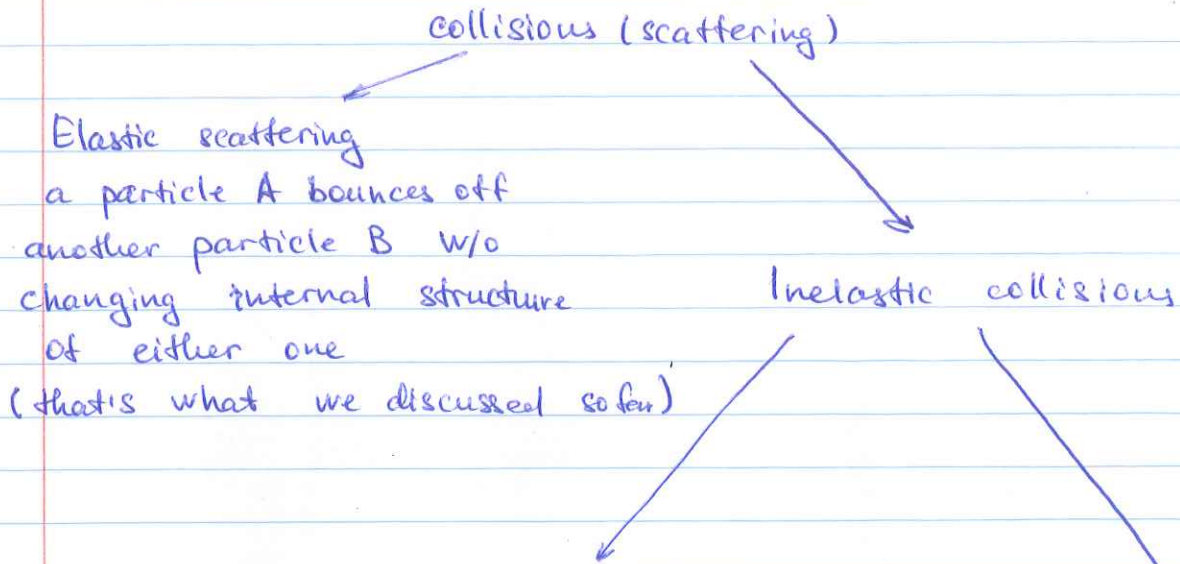 collisions (scattering)
Elastic scattering
a particle A bounces off
another particle B w/o
changing internal structure
of either one
(that's what we discussed so far)
Inelastic collisions